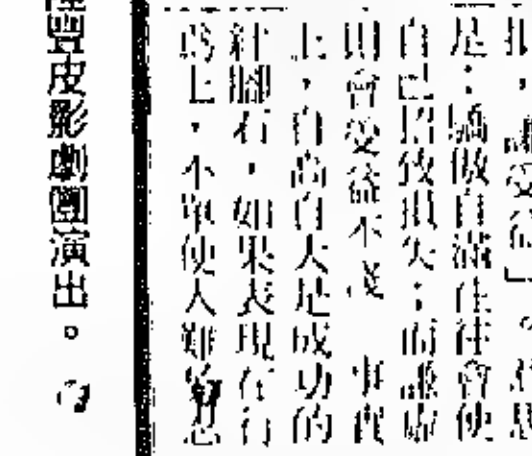 損，謙受益」。意思
是：驕傲自滿往往會使
自己招致損失；而謙虛
則會受益不淺 事實
上，自高自大是成功的
絆腳石，如果表現在行
為上，不單使人難
隆豐皮影劇團演出。